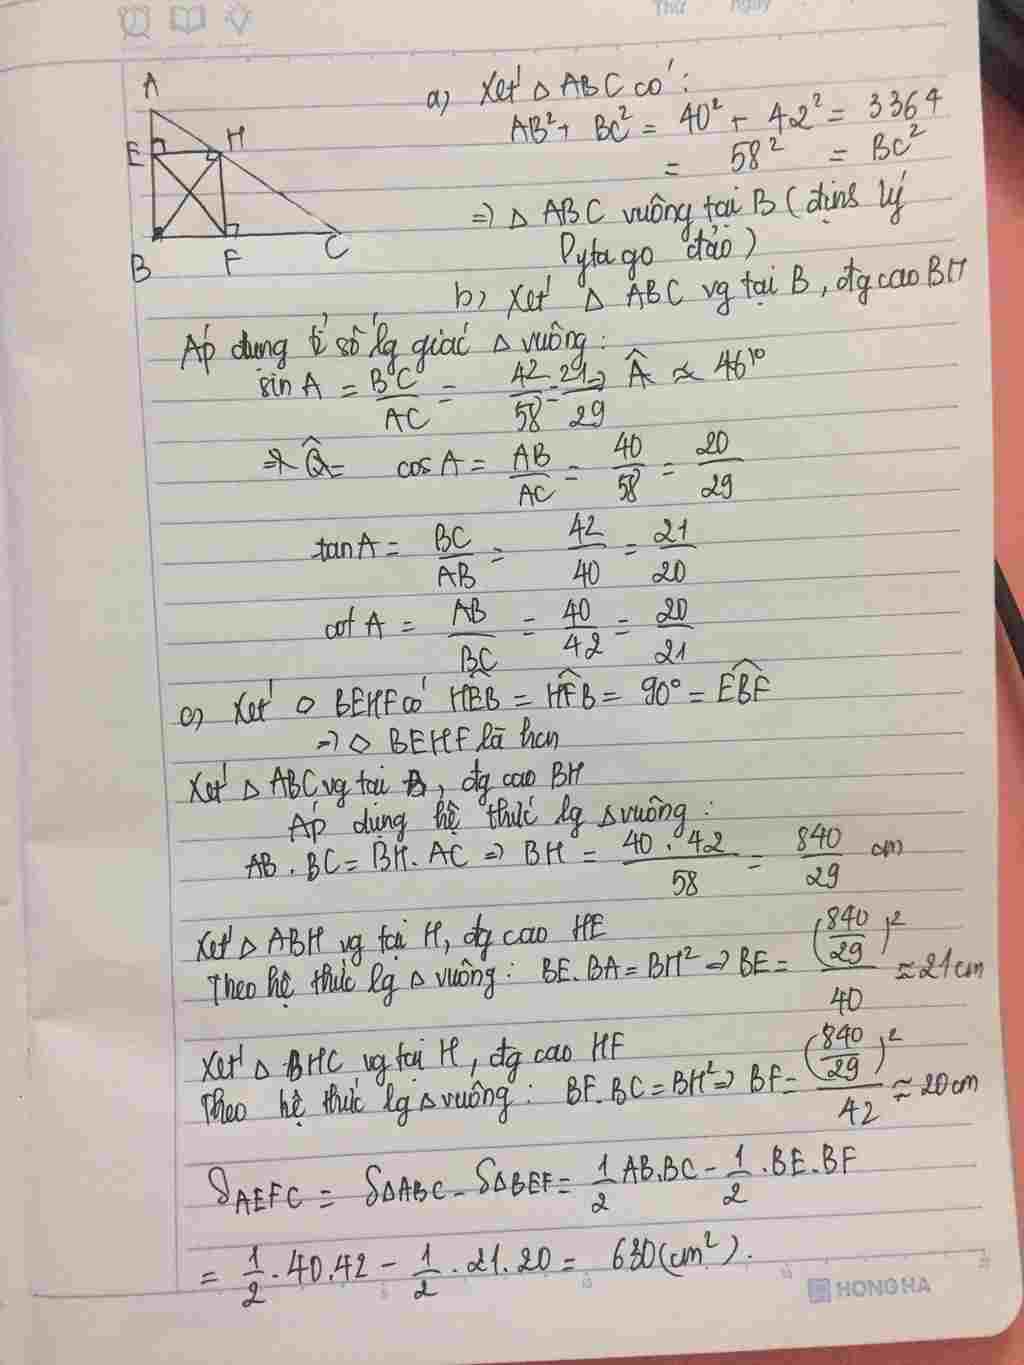 Thứ Ngày
A
E H
B F C
a) Xét △ ABC có:
AB² + BC² = 40² + 42² = 3364
= 58² = BC²
=> △ ABC vuông tại B (định lý
Pytago đảo)
b) Xét △ ABC vg tại B, đg cao BH
Áp dụng tỉ số lg giác △ vuông:
sin A = BC/AC = 42/58 = 21/29 => Â ≈ 46¹⁰
cos A = AB/AC = 40/58 = 20/29
tan A = BC/AB = 42/40 = 21/20
cot A = AB/BC = 40/42 = 20/21
c) Xét ◇ BEHF có HÊB = HF̂B = 90° = EB̂F
=> ◇ BEHF là hcn
Xét △ ABC vg tại B, đg cao BH
Áp dụng hệ thức lg △ vuông:
AB . BC = BH . AC => BH = 40 . 42/58 = 840/29 cm
Xét △ ABH vg tại H, đg cao HE
Theo hệ thức lg △ vuông: BE . BA = BH² => BE = (840/29)²/40 ≈ 21cm
Xét △ BHC vg tại H, đg cao HF
Theo hệ thức lg △ vuông: BF . BC = BH² => BF = (840/29)²/42 ≈ 20cm
S AEFC = S△ABC - S△BEF = 1/2 AB.BC - 1/2 . BE . BF
= 1/2 . 40.42 - 1/2 . 21.20 = 630 (cm²).
HONG HA